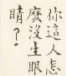 你這人怎
麼沒生眼
睛?